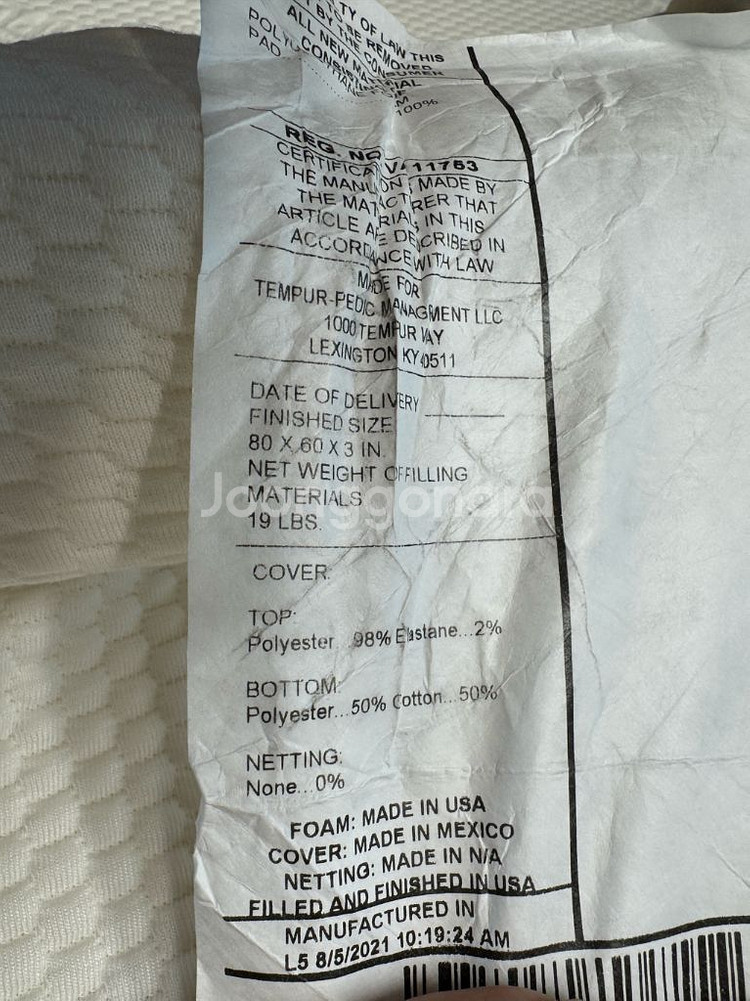 TY OF LAW THIS
BY THE REMOVED
THE CONSUMER
ALL NEW MATERIAL
CONSISTING
PAD
100%
REG. NO. VA 11763
CERTIFICATION MADE BY
THE MANUFACTURER THAT
THE MATERIAL IN THIS
ARTICLE ARE DESCRIBED IN
ACCORDANCE WITH LAW
MADE FOR
TEMPUR-PEDIC MANAGMENT LLC
1000 TEMPUR WAY
LEXINGTON KY 40511
DATE OF DELIVERY
FINISHED SIZE
80 X 60 X 3 IN.
NET WEIGHT OF FILLING
MATERIALS
19 LBS.
COVER:
TOP:
Polyester...98% Elastane...2%
BOTTOM:
Polyester...50% Cotton...50%
NETTING:
None...0%
FOAM: MADE IN USA
COVER: MADE IN MEXICO
NETTING: MADE IN N/A
FILLED AND FINISHED IN USA
MANUFACTURED IN
L5 8/5/2021 10:19:24 AM
Joonggonara